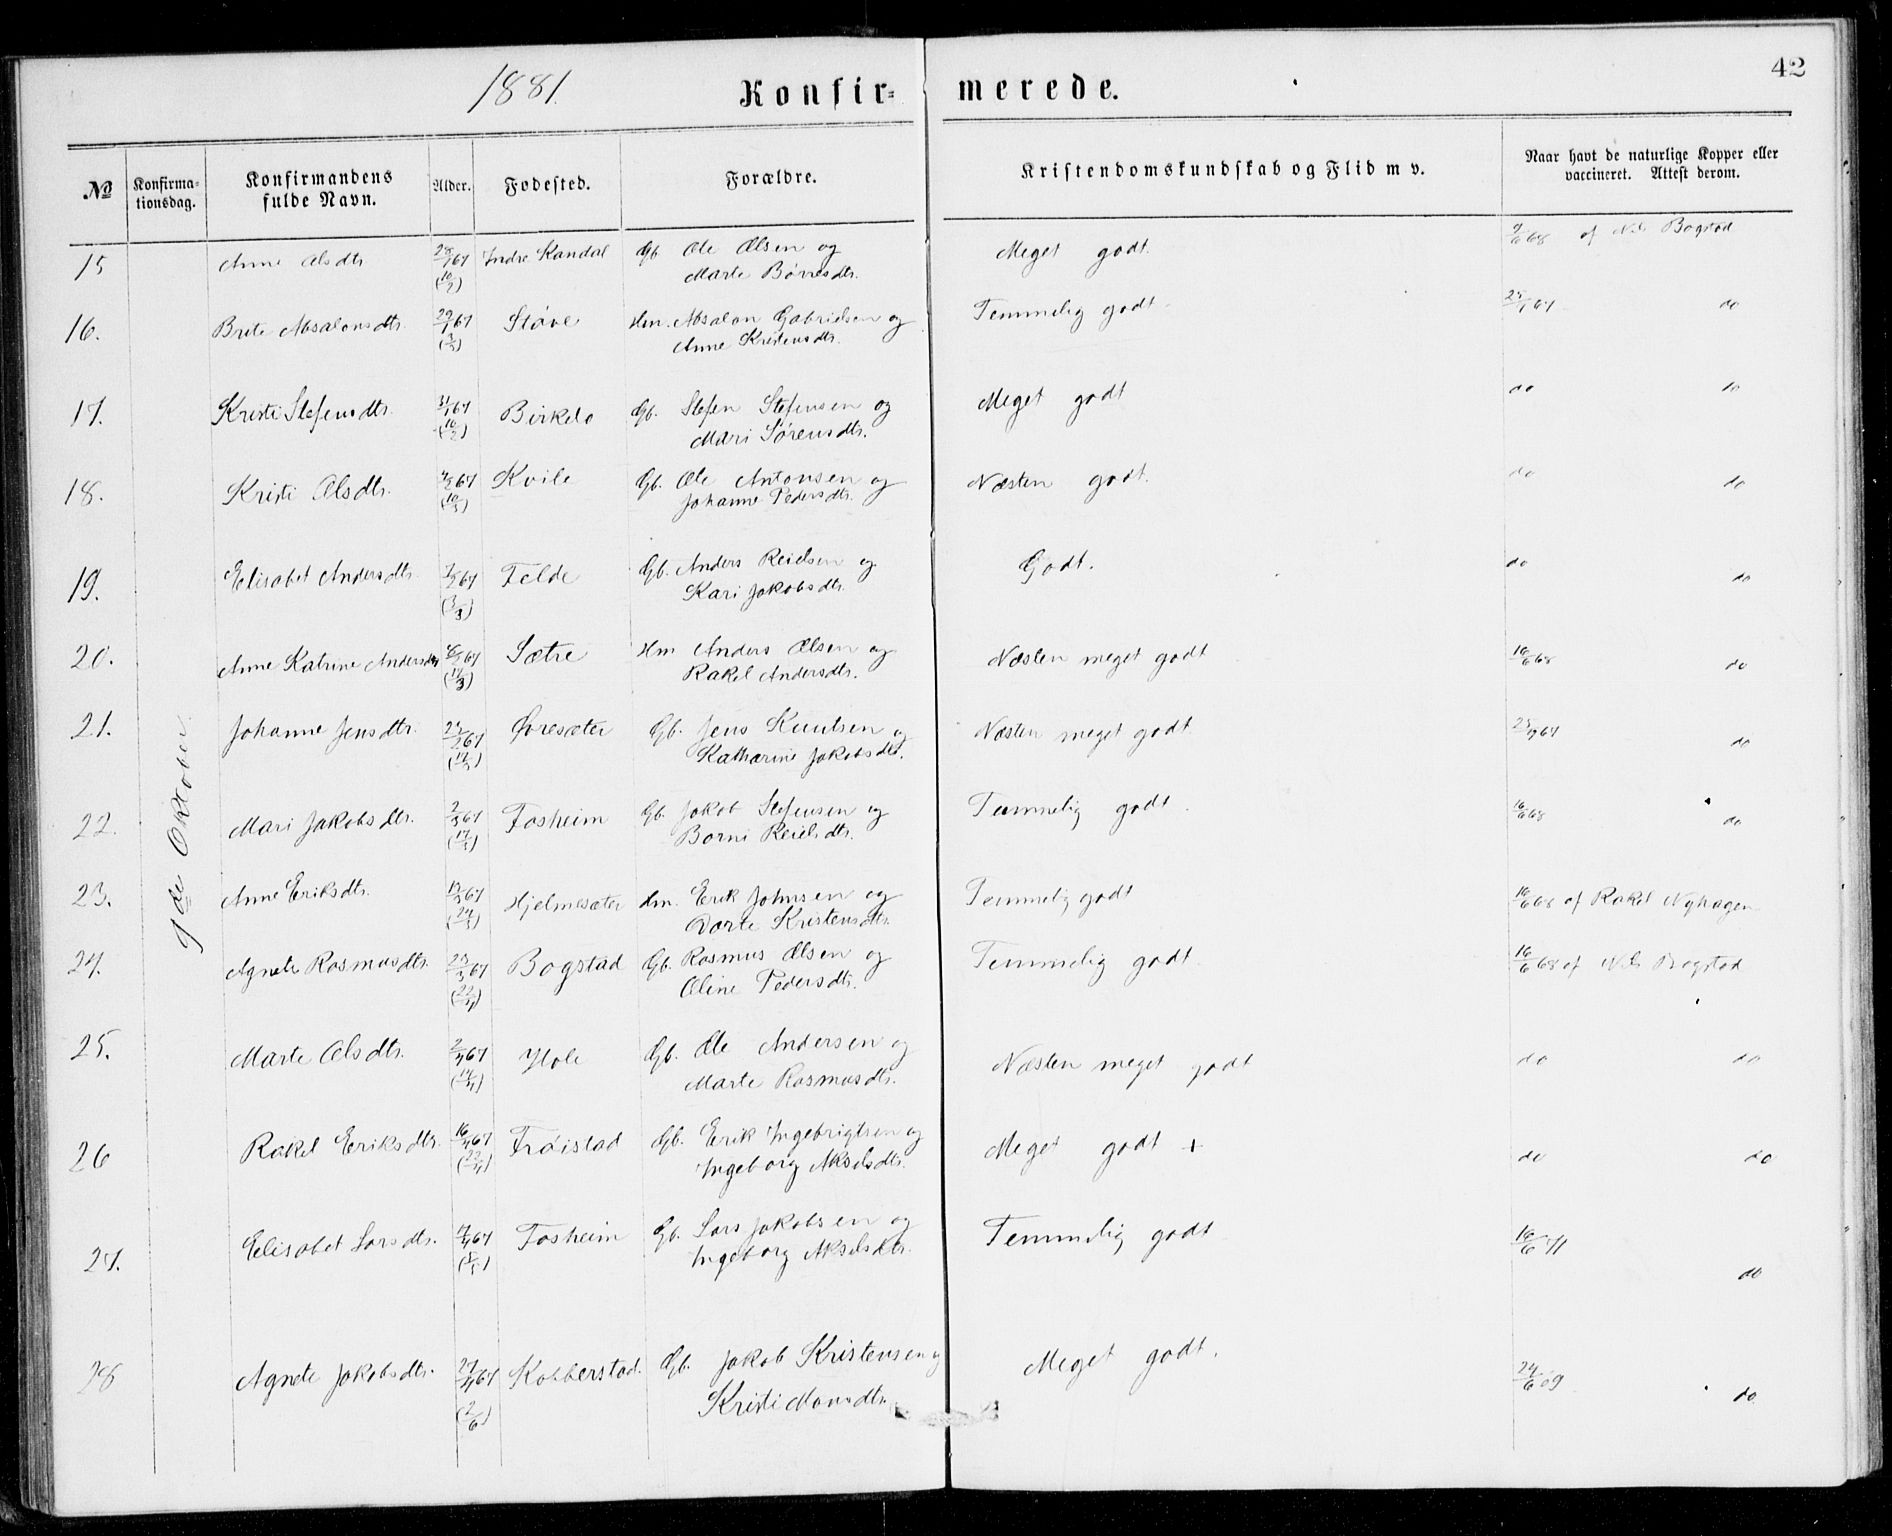 1881.
Konfir= merede.
42
No
Konfirma-
tionsdag.
Konfirmandens
fulde Navn.
Alder.
Fødested.
Forældre.
Kristendomskundskab og Flid m v.
Naar havt de naturlige Kopper eller
vaccineret. Attest derom.
9de Oktober
15 Anne Olsdtr 67 Indre Kandal Gb. Ole Olsen og Meget godt. 9/6 68 af Nils Bogstad
Marte Børresdtr.
16. Brite Absalonsdtr. 29/1 67 Støve Hm. Absalon Gabrielsen og Temmelig godt 67 do
Anne Kristensdtr.
17. Kristi Stefensdtr. 31/1 67 Birkelo Gb. Stefen Stefensen og Meget godt do do
Mari Sørensdtr.
18. Kristi Olsdtr. 67 Kvile Gb. Ole Antonsen og Næsten godt. do do
Johanne Pedersdtr.
19. Elisabet Andersdtr. 67 Felde Gb. Anders Reidsen og Godt. do do
Kari Jakobsdtr.
20. Anne Katrine Andersdtr 67 Sætre Hm Anders Olsen og Næsten meget godt 16/6 68 do
Rakel Andersdtr.
21. Johanne Jensdtr. 67 Øresæter Gb. Jens Knutsen og Næsten meget godt 67 do
Katharine Jakobsdtr.
22. Mari Jakobsdtr. 2/3 67 Fosheim Gb. Jakob Stefensen og Temmelig godt. 16/6 68 do
Borni Reidsdtr.
23. Anne Eriksdtr. 67 Hjelmesæter Hm. Erik Johnsen og Temmelig godt 16/6 68 af Rakel Nyhagen
Dorte Kristensdtr.
24. Agnete Rasmusdtr. 23/3 67 Bogstad Gb. Rasmus Olsen og Temmelig godt. 16/6 68 af Nils Bogstad
(22/4) Oline Pedersdtr.
25. Marte Olsdtr. 2/4 67 Hole Gb. Ole Andersen og Næsten meget godt do do
(14/4) Marte Rasmusdtr.
26 Rakel Eriksdtr. 16/4 67 Frøistad Gb. Erik Ingebrigtsen og Meget godt + do do
(22/4) Ingeborg Akselsdtr.
27. Elisabet Larsdtr. 67 Fosheim Gb. Lars Jakobsen og Temmelig godt 16/6 71 do
Ingeborg Akselsdtr.
28 Agnete Jakobsdtr. 27/4 67 Kobberstad. Gb. Jakob Kristensen og Meget godt. 24/6 69 do
(2/6) Kristi Monsdtr.